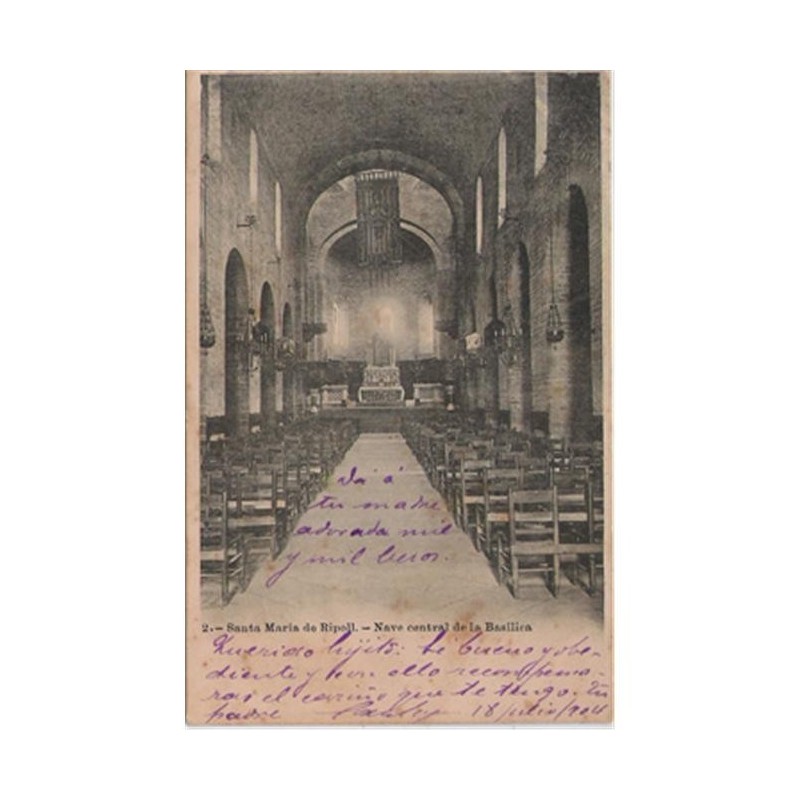 Da á
tu madre
adorada mil
y mil besos.
2.— Santa María de Ripoll. — Nave central de la Basílica
Querido hijito: sé bueno y obe-
diente y con ello recompensa-
ras el cariño que te tengo. tu
padre 18/julio/904